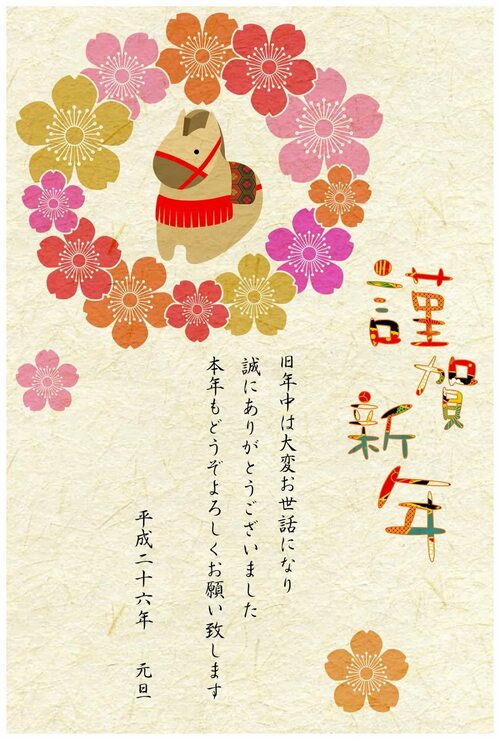 謹賀新年
旧年中は大変お世話になり
誠にありがとうございました
本年もどうぞよろしくお願い致します
平成二十六年 元旦